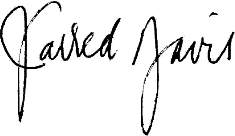 Jarred Javis